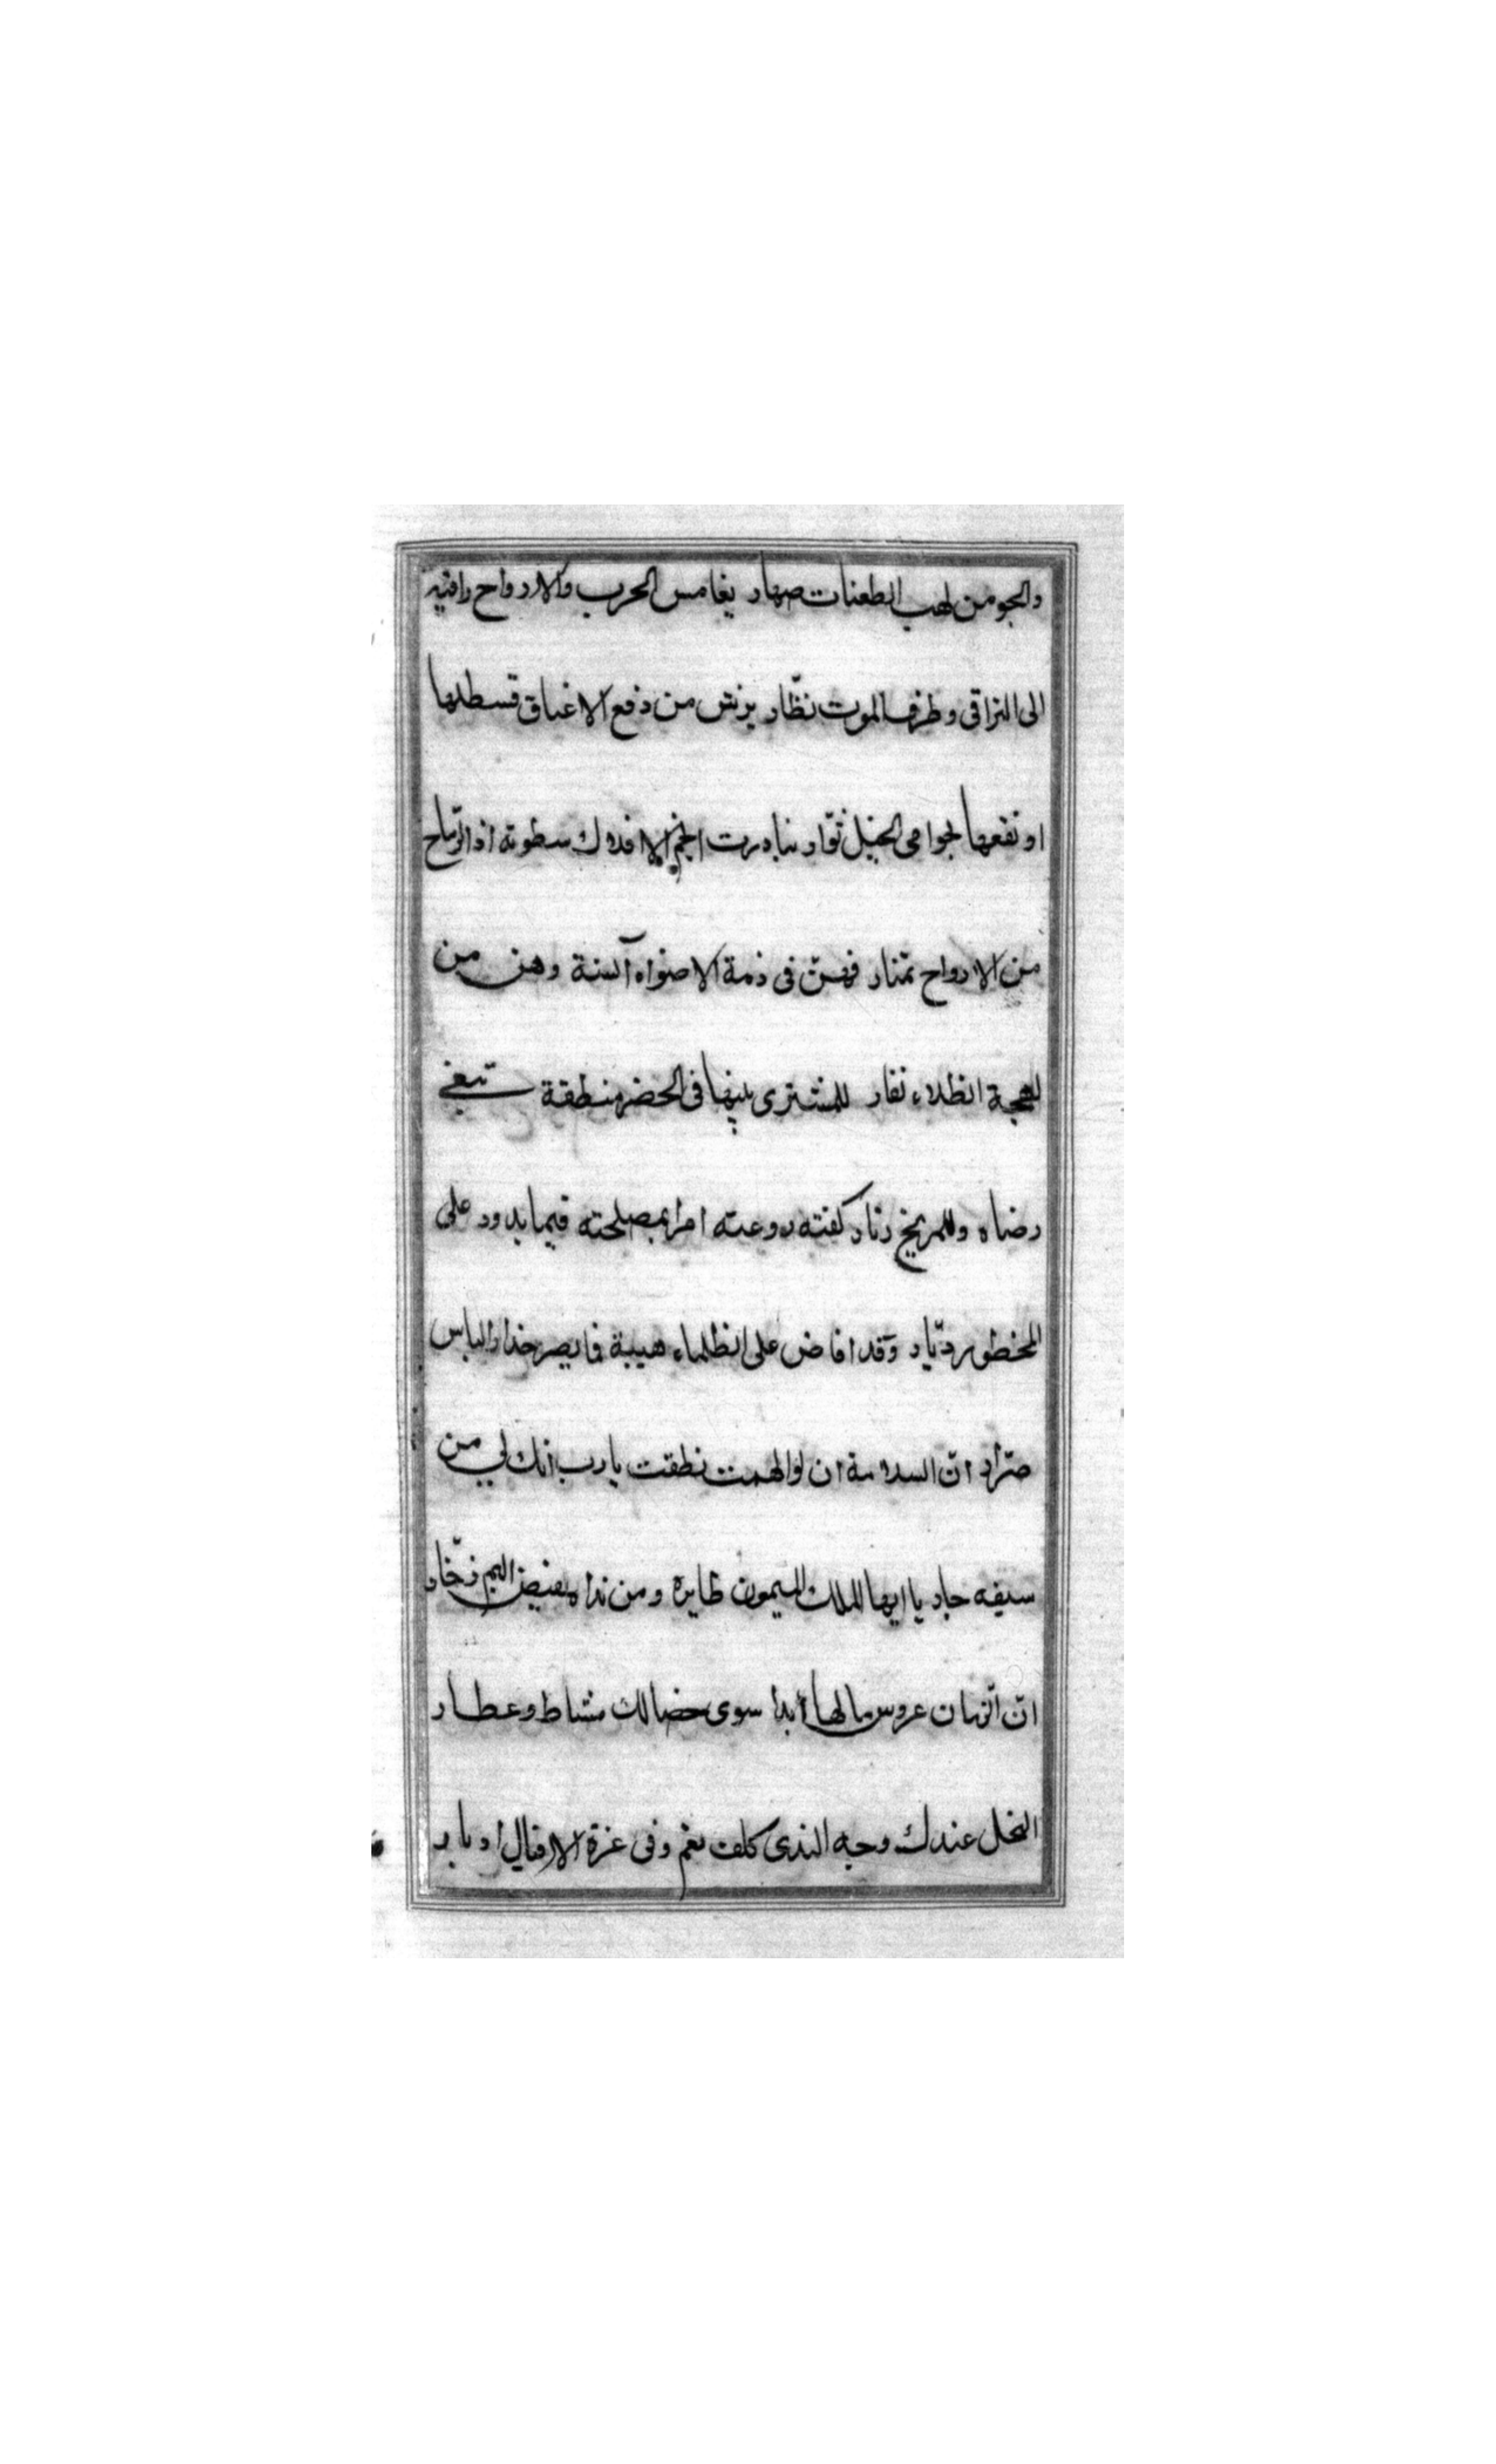 والجو من لهب الطعنات صهار يغامس الحرب والارواح راقيه
الى التراقى وطرف الموت نظّار يرتش من دفع الاعناق قسطلها
او نقعها لحوامى الخيل ثوّار تبادرت انجم الافلاك سطوته اذ الرّماح
من الارواح تمتار فهنّ فى ذمة الاضواء آلسنة وهن من
لهجة الظلاء نفار للمشترى بينها فى الخضر منطقة تبغى
رضاه وللمريخ زنار كفته روعته امرا بمصلحته فيما يدور على
المخطور ديّار وقد افاض على الظلماء هيبة فا يصر خدا والباس
ضرّار انّ السلامة ان لو الهمت نطقت يارب انك لى من
سيفه جار يا ايها الملك الميمون طايره ومن نداه يفيض اليم زخّار
انّ الزمان عروس مالها ابدا سوى خصالك مشاط وعطار
البخل عندك وجه الندى كلف نعم وفى غرة الاقبال ادبار